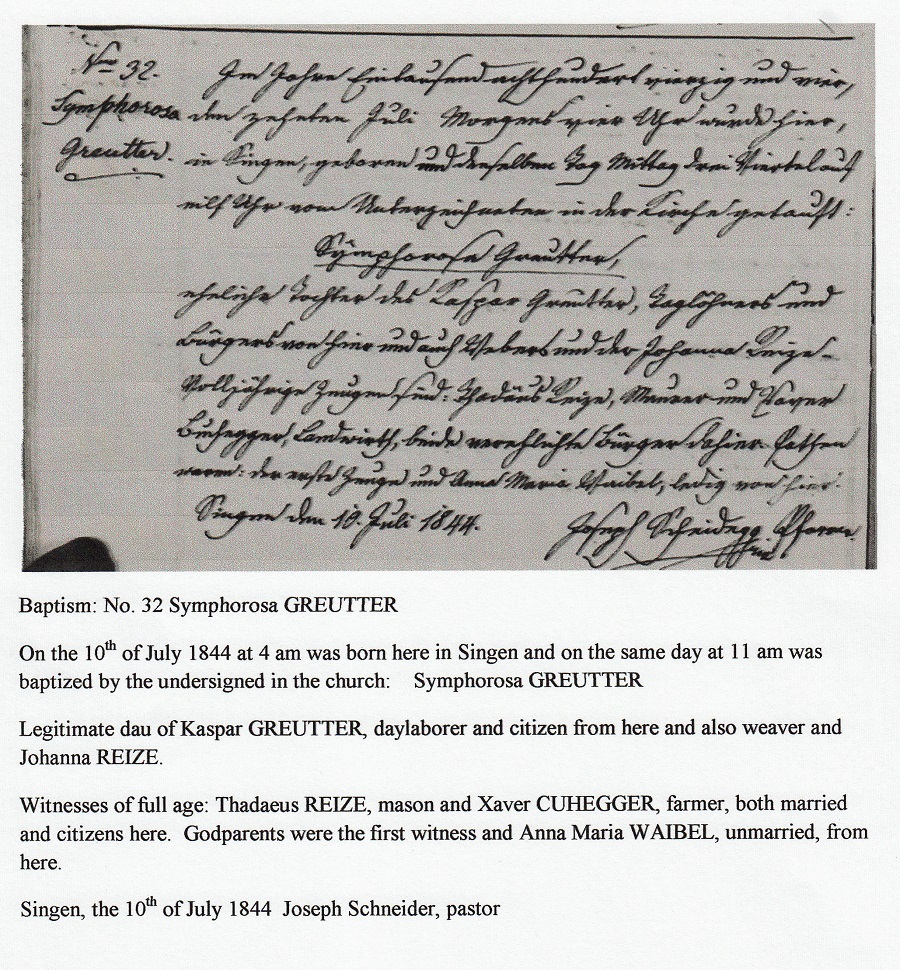 Nro 32.
Symphorosa
Greutter.
Im Jahre Eintausend achthundert vierzig und vier,
den zehnten Juli Morgens vier Uhr wurde hier,
in Singen, geboren und denselben Tag Mittag drei Viertel auf
eilf Uhr vom Unterzeichneten in der Kirche getauft:
Symphorosa Greutter,
eheliche Tochter des Kaspar Greutter, Taglöhners und
Bürgers von hier und auch Webers und der Johanna Reize.
Volljährige Zeugen sind: Thadäus Reize, Maurer und Xaver
Buchegger, Landwirth, beide verehlichte Bürger dahier. Pathen
waren: der erste Zeuge und Anna Maria Waibel, ledig von hier.
Singen den 10. Juli 1844. Joseph Pfarrer.
Baptism: No. 32 Symphorosa GREUTTER
On the 10th of July 1844 at 4 am was born here in Singen and on the same day at 11 am was
baptized by the undersigned in the church: Symphorosa GREUTTER
Legitimate dau of Kaspar GREUTTER, daylaborer and citizen from here and also weaver and
Johanna REIZE.
Witnesses of full age: Thadaeus REIZE, mason and Xaver CUHEGGER, farmer, both married
and citizens here. Godparents were the first witness and Anna Maria WAIBEL, unmarried, from
here.
Singen, the 10th of July 1844 Joseph Schneider, pastor